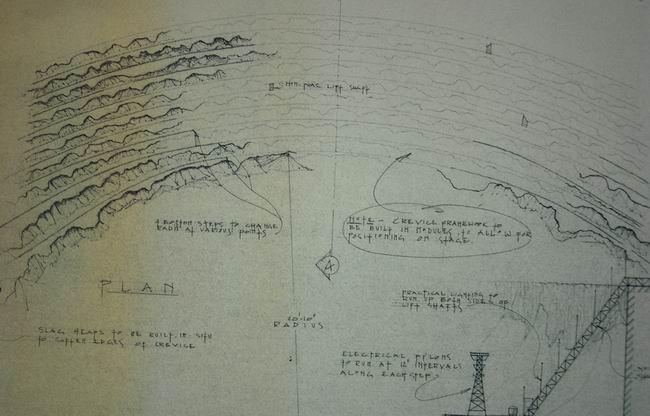 LIFT SHAFT
BOTTOM STEPS TO CHANGE
RADII AT VARIOUS POINTS
NOTE - CREVICE FRAMEWORK TO
BE BUILT IN MODULES TO ALLOW FOR
POSITIONING ON STAGE.
A
PLAN
PRACTICAL LIGHTING TO
RUN UP BOTH SIDES OF
LIFT SHAFTS
RADIUS
SLAG HEAPS TO BE BUILT IN SITU
TO SOFTEN EDGES OF CREVICE
ELECTRICAL PYLONS
TO RUN AT 12' INTERVALS
ALONG EACH STEP